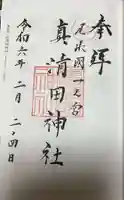 奉拝
尾張國一之宮
真清田神社
令和六年二月二十四日